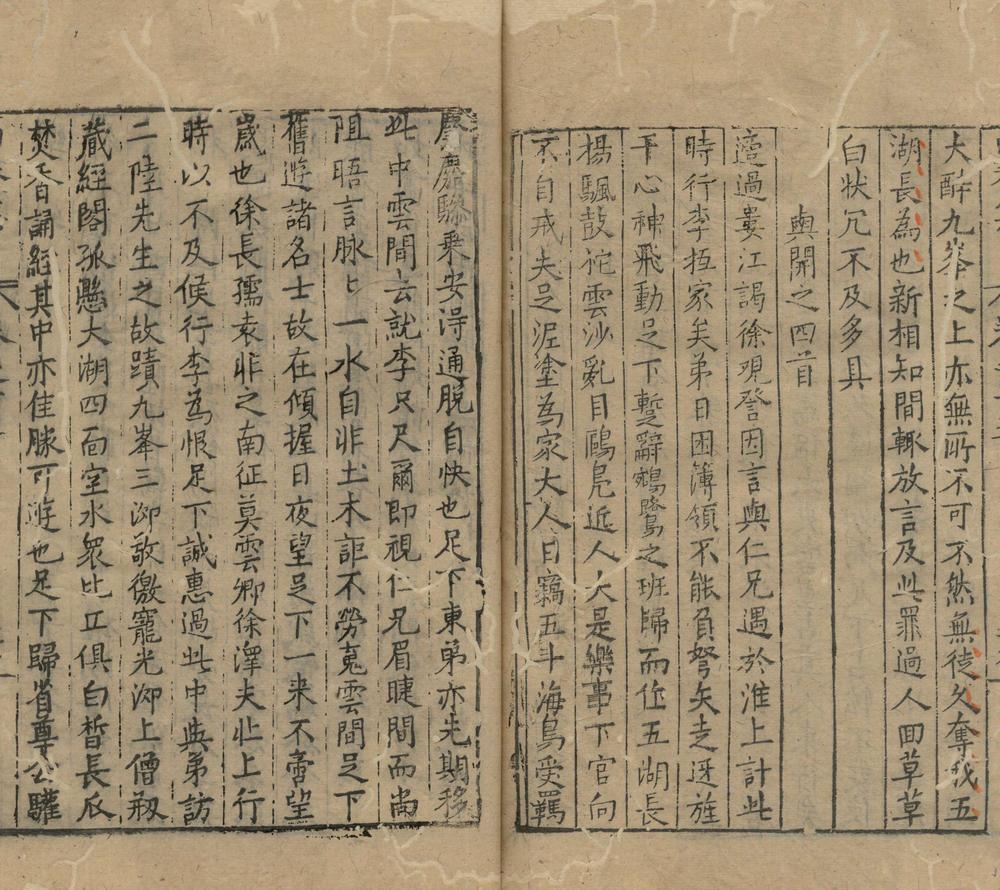 大醉九峯之上亦無所不可不然無徒久奪我五
湖長為也新相知間輒放言及此罪過人回草草
白狀冗不及多具
與開之四首
違過婁江謁徐現登因言與仁兄遇於淮上計此
時行李抵家矣弟日困簿領不能負弩矢走迓旌
干心神飛動足下蹔辭鵷鷺之班歸而作五湖長
楊颿鼓柁雲沙亂目鷗鳧近人大是樂事下官向
不自戒失足泥塗為家大人日竊五斗海鳥受羈
麏麚驂乗安得通脫自快也足下東弟亦先期移
此中雲間去就李只尺爾即視仁兄眉睫間而尚
阻晤言脉匕一水自非土木詎不勞䰟雲間足下
舊遊諸名士故在傾握日夜望足下一来不啻望
歲也徐長孺袁非之南征莫雲卿徐澤夫北上行
時以不及候行李為恨足下誠惠過此中與弟訪
二陸先生之故蹟九峯三泖敬徼寵光泖上僧剏
藏經閣孤懸大湖四面空水衆比丘俱白皙長瓜
焚香日誦經其中亦佳勝可遊也足下歸省尊公驩